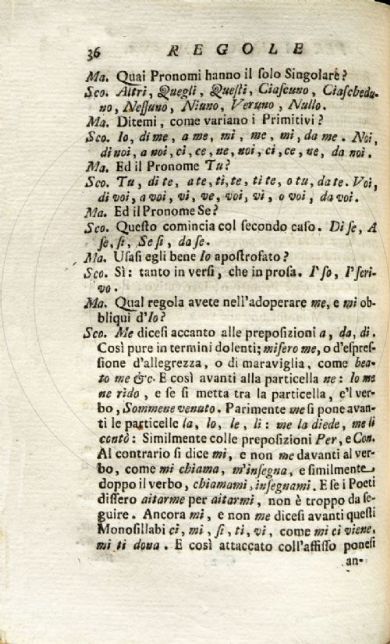 36 REGOLE
Ma. Quai Pronomi hanno il solo Singolare?
Sco. Altri, Quegli, Questi, Ciascuno, Ciaschedu-
no, Nessuno, Niuno, Veruno, Nullo.
Ma. Ditemi, come variano i Primitivi?
Sco. Io, di me, a me, mi, me, mi, da me. Noi,
di noi, a noi, ci, ce, ne, noi, ci, ce, ne, da noi.
Ma. Ed il Pronome Tu?
Sco. Tu, di te, a te, ti, te, ti te, o tu, da te. Voi,
di voi, a voi, vi, ve, voi, vi, o voi, da voi.
Ma. Ed il Pronome Se?
Sco. Questo comincia col secondo caso. Di se, A
se, si, Se si, da se.
Ma. Usasi egli bene Io apostrofato?
Sco. Sì: tanto in versi, che in prosa. I'so, I'scri-
vo.
Ma. Qual regola avete nell'adoperare me, e mi ob-
bliqui d'Io?
Sco. Me dicesi accanto alle preposizioni a, da, di.
Così pure in termini dolenti; misero me, o d'espres-
sione d'allegrezza, o di maraviglia, come bea-
to me &c. E così avanti alla particella ne: Io me
ne rido, e se si metta tra la particella, e'l ver-
bo, Sommene venuto. Parimente me si pone avan-
ti le particelle la, lo, le, li: me la diede, me li
contò: Similmente colle preposizioni Per, e Con.
Al contrario si dice mi, e non me davanti al ver-
bo, come mi chiama, m'insegna, e similmente
doppo il verbo, chiamami, insegnami. E se i Poeti
dissero aitarme per aitarmi, non è troppo da se-
guire. Ancora mi, e non me dicesi avanti questi
Monosillabi ci, mi, si, ti, vi, come mi ci viene,
mi ti dona. E così attaccato coll'affisso ponesi
an-